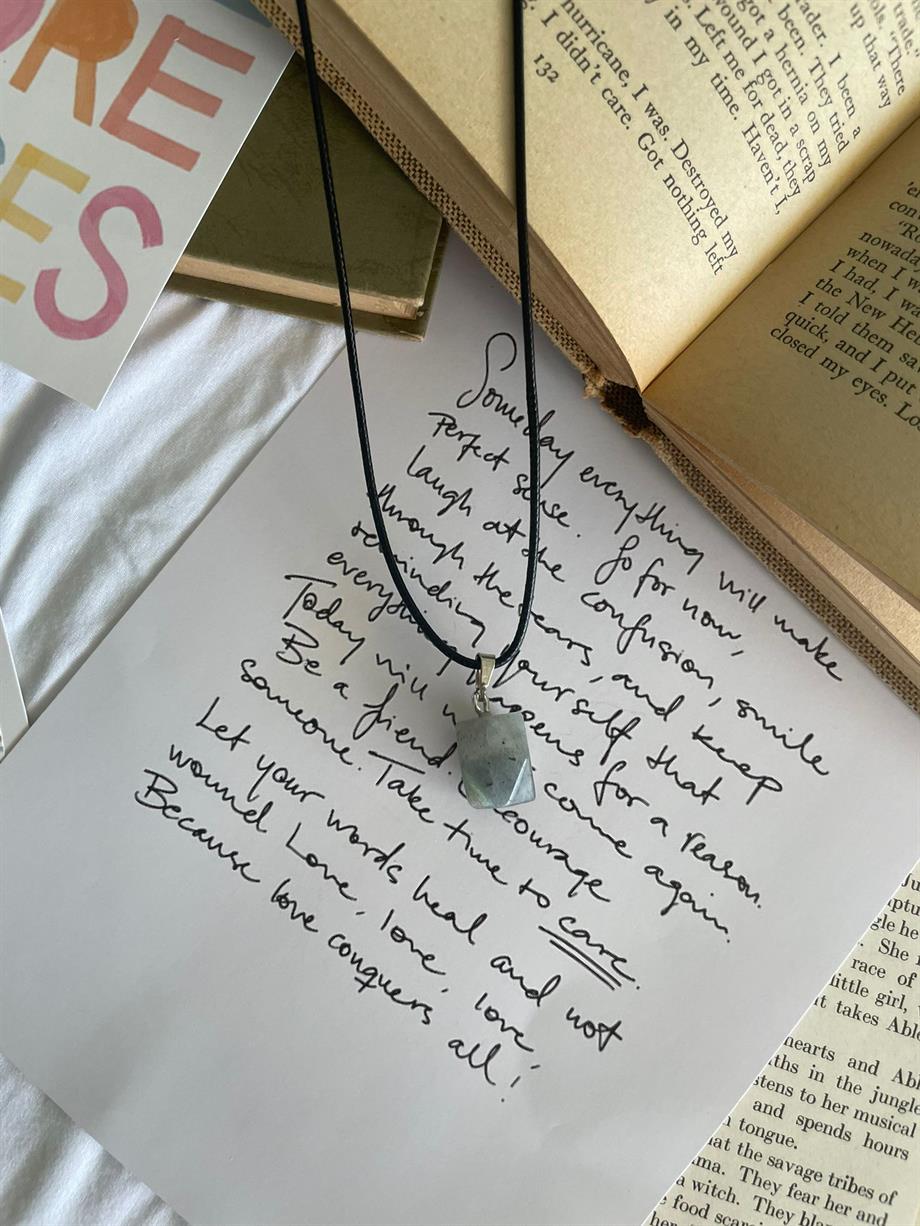 ORE
ES
trade.
"There
up that way
I been a
been. They tried
got a hernia on my
wound I got in a scrap
Left me for dead, they
in my time. Haven't I,
hurricane, I was. Destroyed my
I didn't care. Got nothing left
132
when I
I had, I
the New
I told them
quick, and I put
closed my eyes.
Someday everything will make
Perfect sense. So for now,
laugh at the confusion, smile
through the tears, and keep
reminding yourself that
everything happens for a reason.
Today will come again.
Be a friend. Encourage
someone. Take time to care.
Let your words heal and not
wound. Love, love, love,
Because love conquers all!
She
race of
little girl,
it takes
hearts and
in the jungle
to her musical
and spends hours
tongue.
the savage tribes of
They fear her and
a witch. They
food